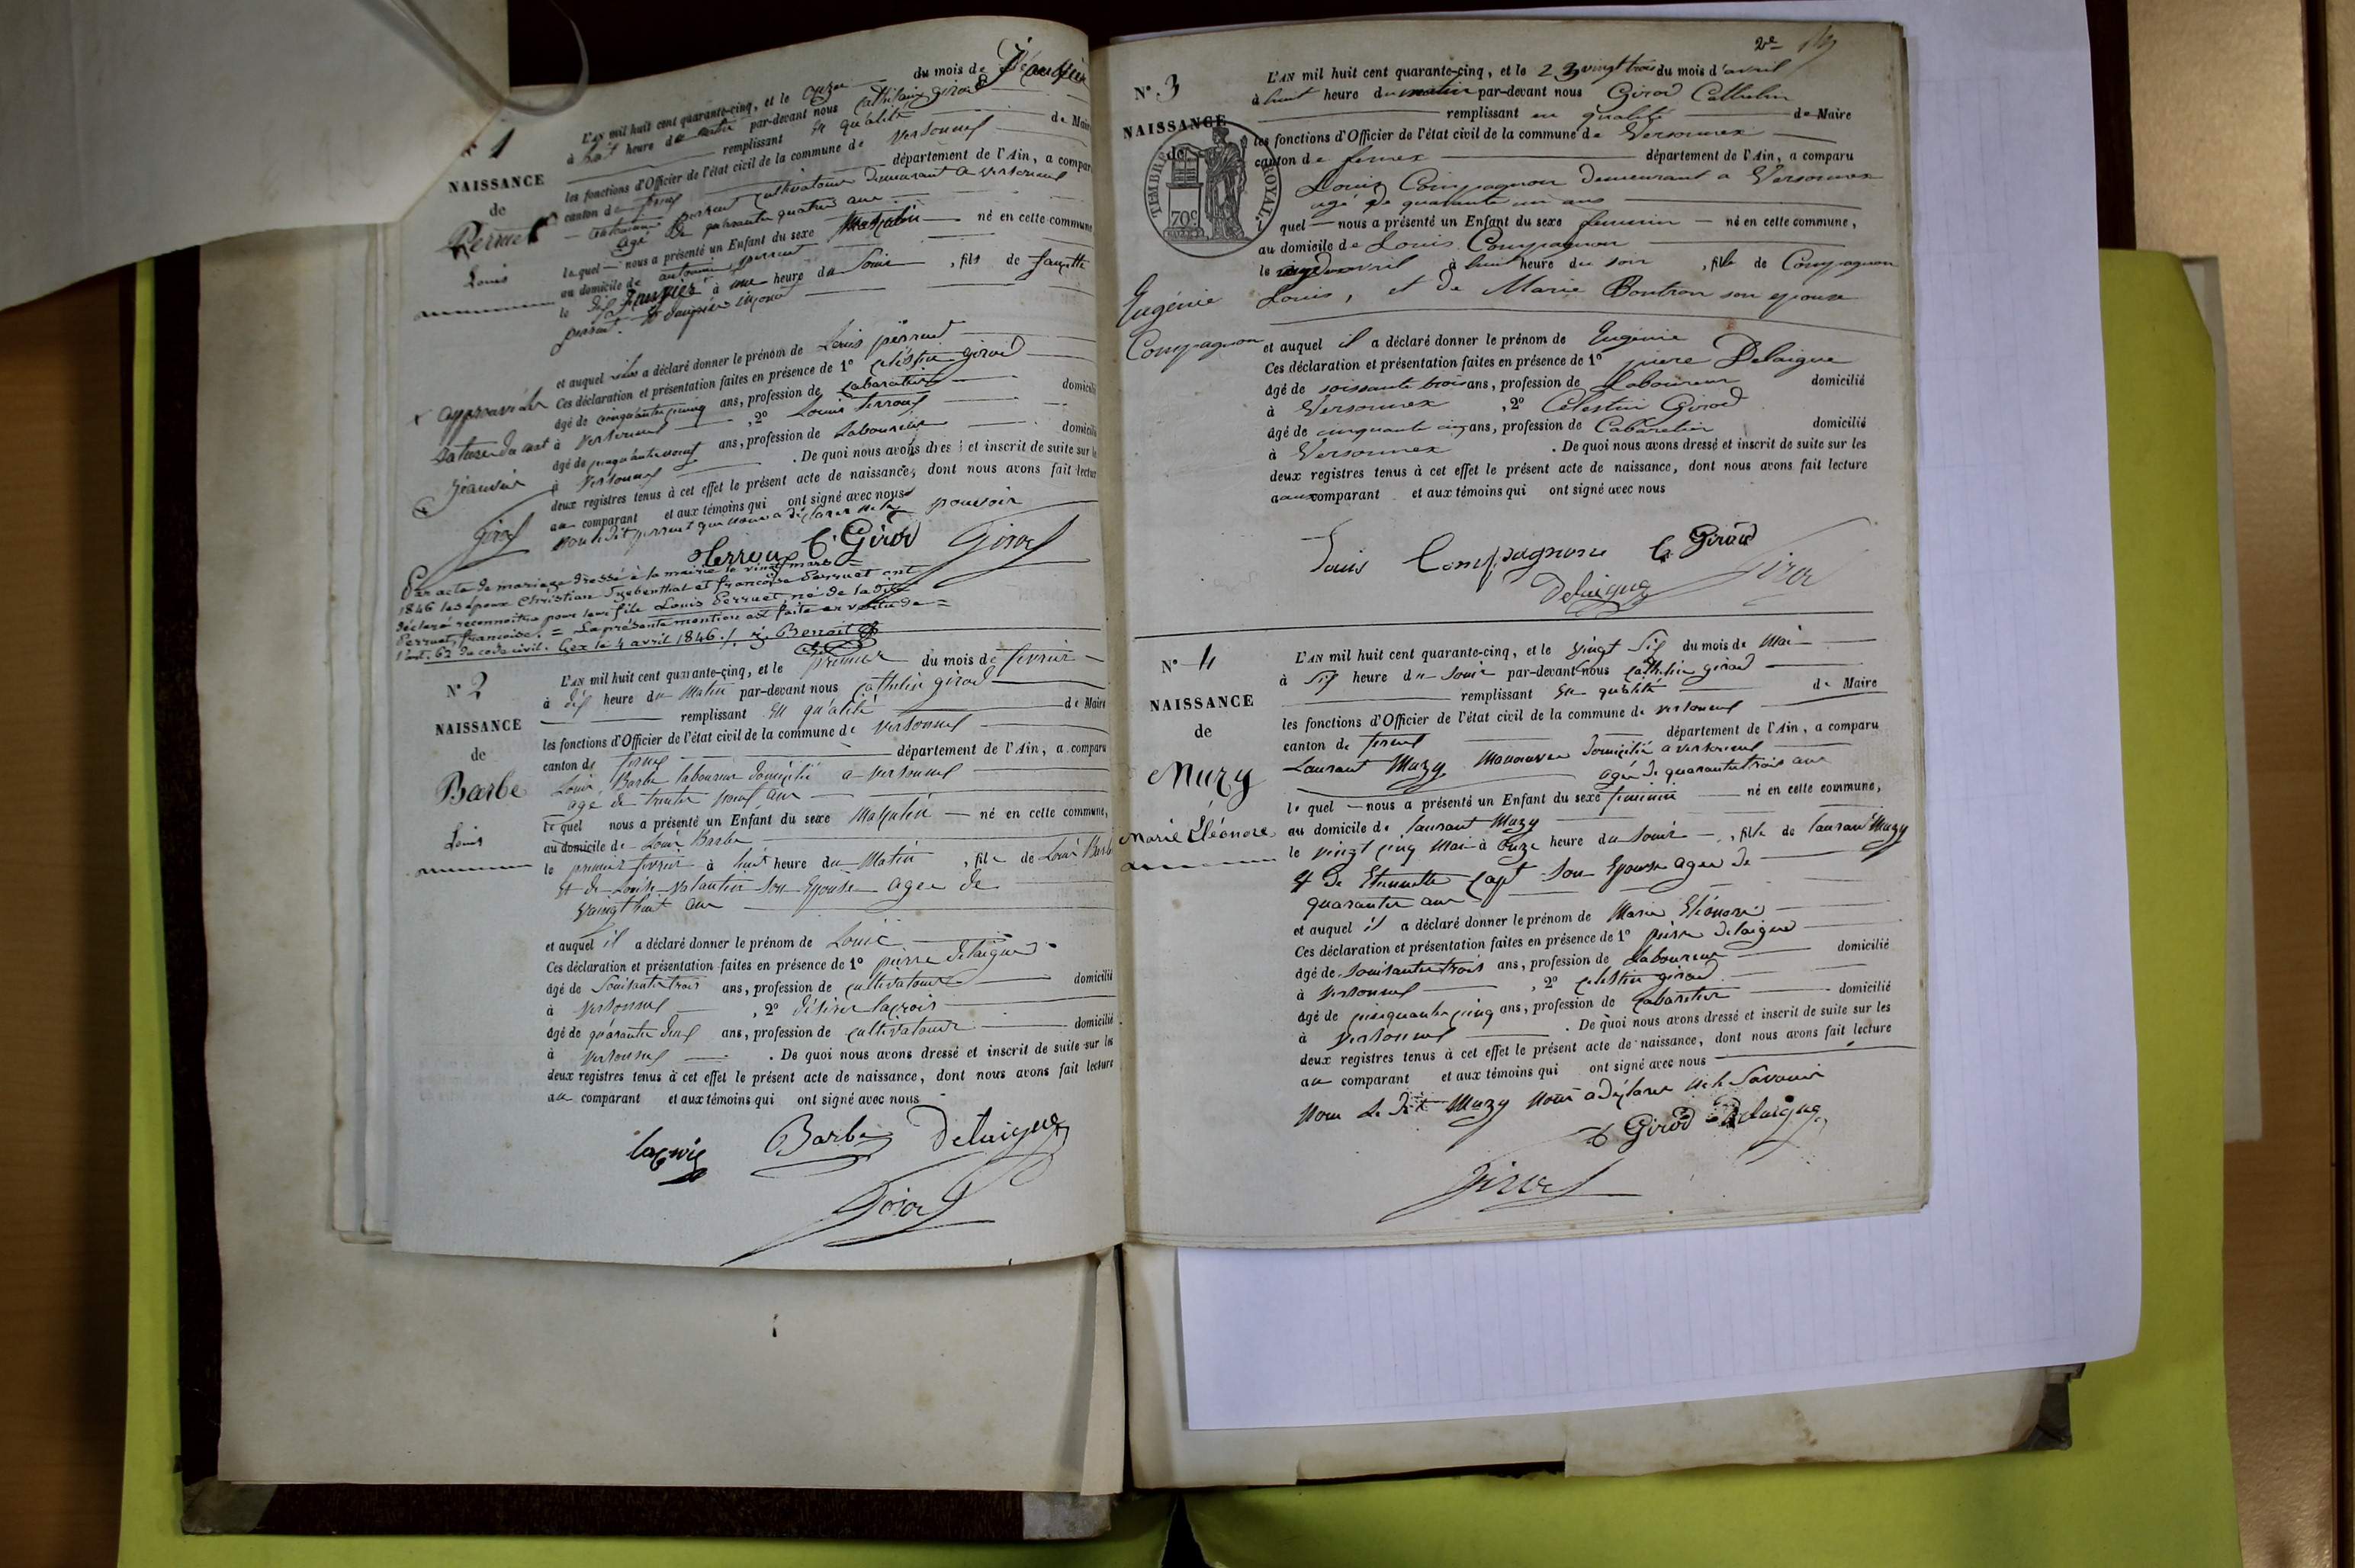 N° 1
NAISSANCE
de
Perruet
Louis
L'AN mil huit cent quarante-cinq, et le onze du mois de Janvier
à huit heure du matin par-devant nous Cathelin girod
remplissant En qualité de Maire
les fonctions d'Officier de l'état civil de la commune de versonnex
canton de fernex département de l'Ain, a comparu
antoinne perruet cultivatour demeurant a versonnex
agé de soixante quatres ans
le quel nous a présenté un Enfant du sexe Masculin né en cette commune
au domicile de antoinne perruet
le dix Janvier à une heure du Soir, fils de
perruet
et auquel a déclaré donner le prénom de Louis perruet
Ces déclaration et présentation faites en présence de 1° célèstin girod
âgé de cinquante cinq ans, profession de Cabaratier domicilié
à versonnex, 2° Louis terroux
âgé de cinquante neuf ans, profession de Laboureur domicilié
à versonnex. De quoi nous avons dressé et inscrit de suite sur les
deux registres tenus à cet effet le présent acte de naissance, dont nous avons fait lecture
au comparant et aux témoins qui ont signé avec nous
non le dit perruet que nous a déclarer ne le pouvoir
x approuvé la
rature du mot
Janvier
Girod
Terroux C. Girod Girod
Par acte de mariage dressé à la mairie le vingt mars
1846 les époux Christian Trebenthal et françoise Perruet ont
déclaré reconnaître pour leur fils Louis Perruet, né de la dite
Perruet, françoise. = La présente mention est faite en vertu de =
l'art. 62 du code civil. Gex le 4 avril 1846. Benoit
N° 2
NAISSANCE
de
Barbe
Louis
L'AN mil huit cent quarante-cinq, et le premier du mois de fevrier
à dix heure du Matin par-devant nous Cathelin girod
remplissant En qu'alité de Maire
les fonctions d'Officier de l'état civil de la commune de versonnex
canton de fernex département de l'Ain, a comparu
Louis Barbe laboureur domicilié a versonnex
agé de trente neuf ans
le quel nous a présenté un Enfant du sexe Masculin né en cette commune,
au domicile de Louis Barbe
le premier fevrier à huit heure du Matin, fils de Louis Barbe
et de Louise valantin son Epouse agee de
vaingt huit ans
et auquel il a déclaré donner le prénom de Louis
Ces déclaration et présentation faites en présence de 1° pierre delaigue
âgé de Soixante trois ans, profession de cultivatour domicilié
à versonnex, 2° désirer lacroix
âgé de quarante deux ans, profession de cultivatour domicilié
à versonnex. De quoi nous avons dressé et inscrit de suite sur les
deux registres tenus à cet effet le présent acte de naissance, dont nous avons fait lecture
au comparant et aux témoins qui ont signé avec nous
lacroix Barbe Delaigue
Girod
2e
N° 3
NAISSANCE
de
TIMBRE ROYAL
70c
Eugénie
Compagnon
L'AN mil huit cent quarante-cinq, et le 23 vingt trois du mois d'avril
à huit heure du matin par-devant nous Girod Cathelin
remplissant en qualité de Maire
les fonctions d'Officier de l'état civil de la commune de Versonnex
canton de fernex département de l'Ain, a comparu
Louis Compagnon demeurant a Versonnex
agé de quarante un ans
quel nous a présenté un Enfant du sexe feminin né en cette commune,
au domicile de Louis Compagnon
le avril à huit heure du soir, fille de Compagnon
Louis, et de Marie Bontron son epouse
et auquel il a déclaré donner le prénom de Eugénie
Ces déclaration et présentation faites en présence de 1° pierre Delaigue
âgé de soissante trois ans, profession de Laboureur domicilié
à Versonnex, 2° Célestin Girod
âgé de cinquante cinq ans, profession de Cabaretier domicilié
à Versonnex. De quoi nous avons dressé et inscrit de suite sur les
deux registres tenus à cet effet le présent acte de naissance, dont nous avons fait lecture
aux comparant et aux témoins qui ont signé avec nous
Louis Compagnon C. Girod
Delaigue Girod
N° 4
NAISSANCE
de
Muzy
Marie Eléonore
L'AN mil huit cent quarante-cinq, et le vingt Six du mois de Mai
à Six heure du Soir par-devant nous Cathelin girod
remplissant En qualité de Maire
les fonctions d'Officier de l'état civil de la commune de versonnex
canton de fernex département de l'Ain, a comparu
Laurant Muzy Manouvre domicilié a versonnex
agé de quarante trois ans
le quel nous a présenté un Enfant du sexe feminin né en cette commune,
au domicile de laurant Muzy
le vingt cinq Mai à Onze heure du Soir, fille de laurant Muzy
et de Etiennette Capt Son Epouse agee de
quarante ans
et auquel il a déclaré donner le prénom de Marie Eléonore
Ces déclaration et présentation faites en présence de 1° pierre delaigue
âgé de Soixante trois ans, profession de Laboureur domicilié
à versonnex, 2° celestin girod
âgé de cinquante cinq ans, profession de Cabaretier domicilié
à versonnex. De quoi nous avons dressé et inscrit de suite sur les
deux registres tenus à cet effet le présent acte de naissance, dont nous avons fait lecture
au comparant et aux témoins qui ont signé avec nous
Non Le dit Muzy Nous a déclarer ne le Savoir
C Girod Delaigue
Girod